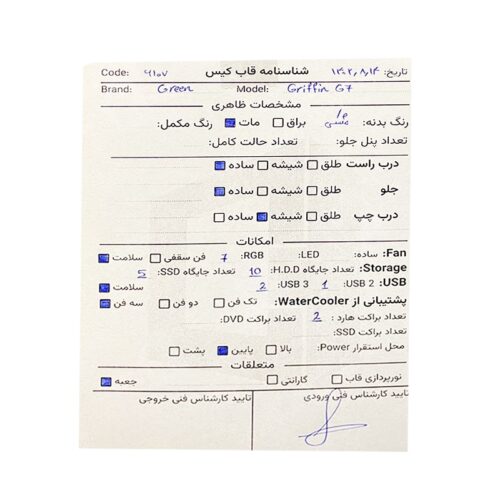 شناسنامه قاب کیس تاریخ: ۱۴۰۲,۸,۱۴ Code: ۷۱۰۷
Brand: Green Model: Griffin G7
مشخصات ظاهری
رنگ بدنه: مشکی براق مات رنگ مکمل:
تعداد پنل جلو: تعداد حالت کامل:
درب راست طلق شیشه ساده
جلو طلق شیشه ساده
درب چپ طلق شیشه ساده
امکانات
Fan: ساده: LED: RGB: 7 فن سقفی سلامت
Storage: تعداد جایگاه H.D.D: 10 تعداد جایگاه SSD: 5
USB: USB 2: 1 USB 3: 2 سلامت
پشتیبانی از WaterCooler: تک فن دو فن سه فن
تعداد براکت هارد: 2 تعداد براکت DVD:
تعداد براکت SSD:
محل استقرار Power: بالا پایین پشت
متعلقات
نورپردازی قاب گارانتی جعبه
تایید کارشناس فنی ورودی تایید کارشناس فنی خروجی